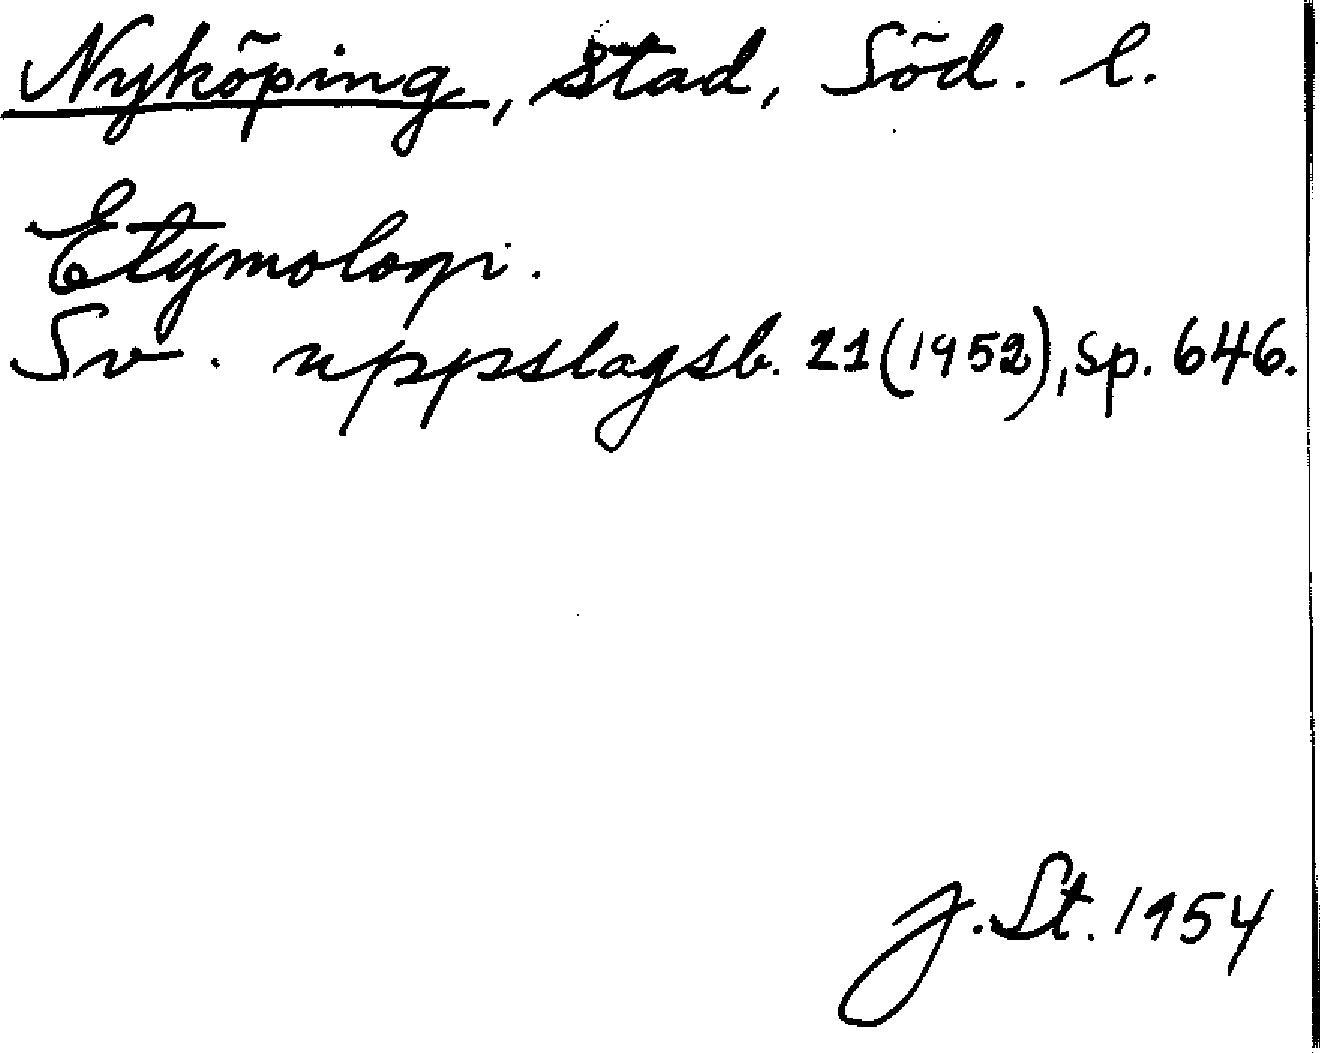 Nyköping, stad, Söd. l.
Etymologi.
Sv. uppslagsb. 21 (1952), sp. 646.
J. St. 1954